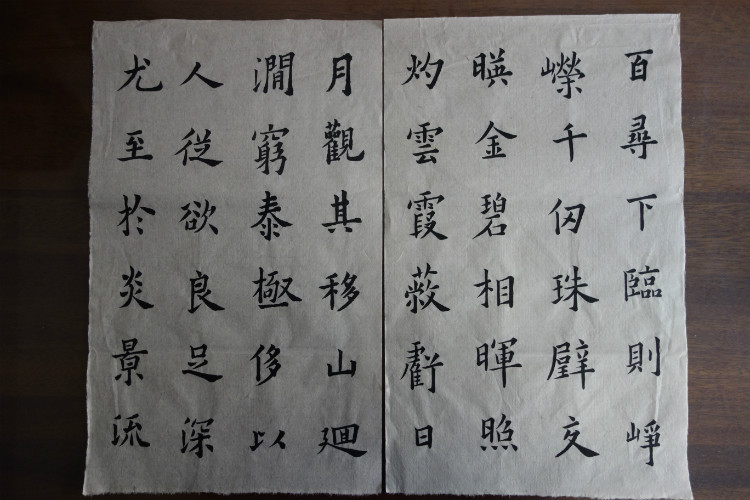 百尋下臨則崢
嶸千仞珠璧交
暎金碧相暉照
灼雲霞蔽虧日
月觀其移山廻
澗窮泰極侈以
人從欲良足深
尤至於炎景流